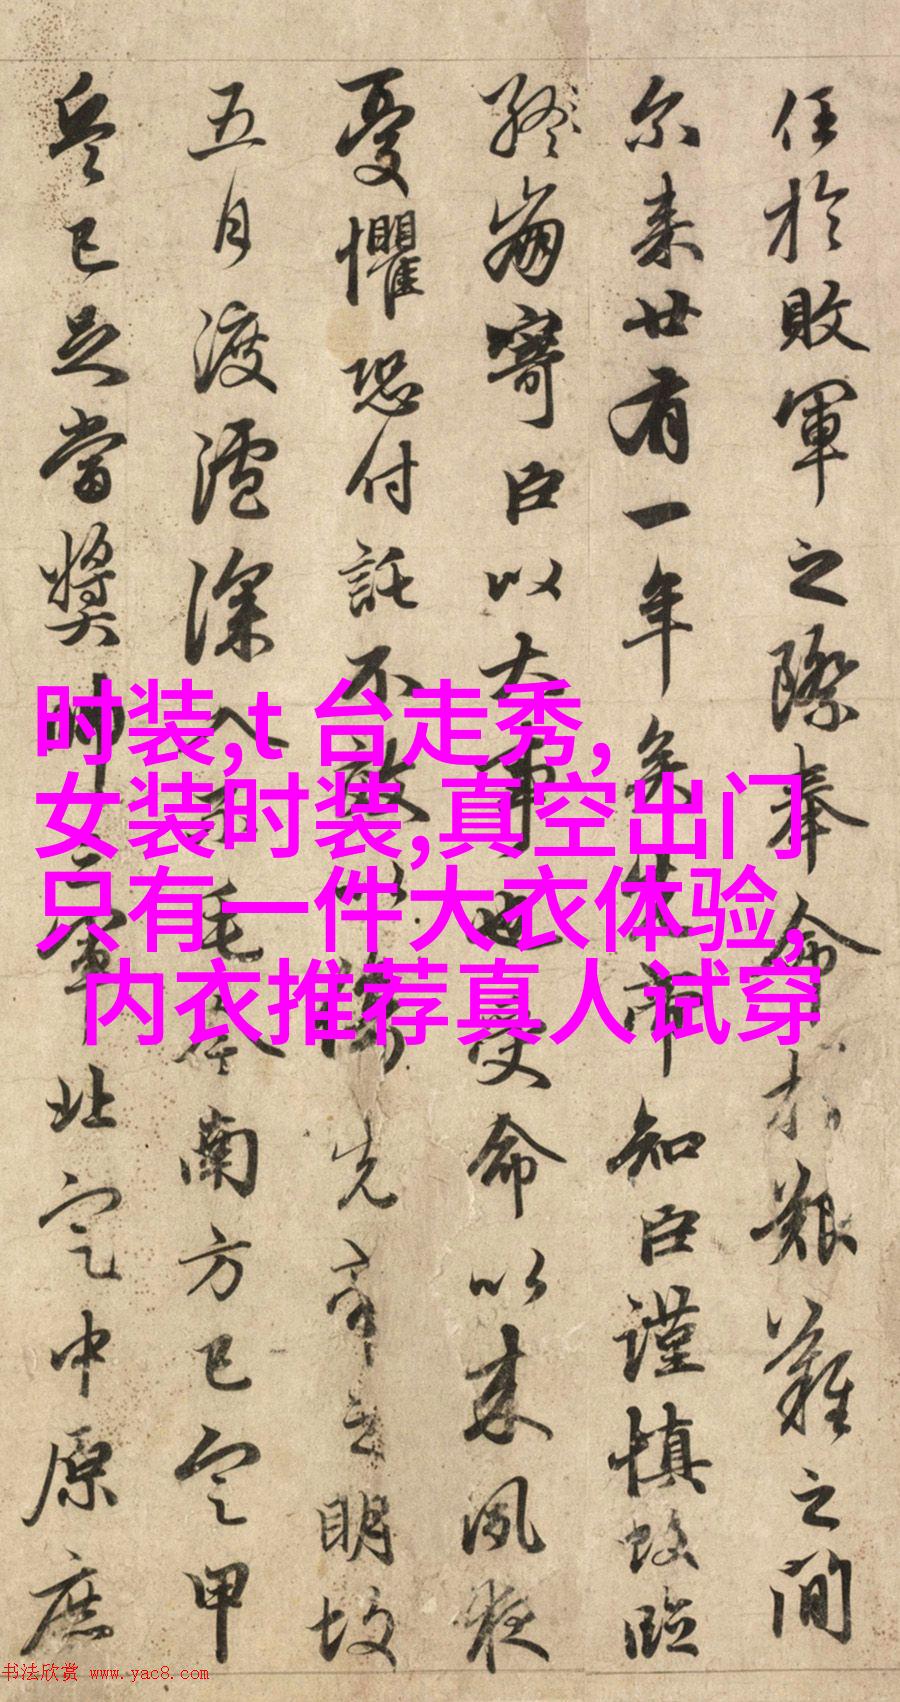 任於敗軍之際奉命於艱難之間
尔来廿有一年矣先帝知臣謹慎故臨
終崩寄臣以大事也受命以来夙夜
憂懼恐付託不效以傷先帝之明故
五月渡瀘深入不毛今南方已定甲
兵已足當獎帥三軍北定中原庶
时装,t 台走秀,
女装时装,真空出门
只有一件大衣体验,
内衣推荐真人试穿
书法欣赏 www.yac8.com